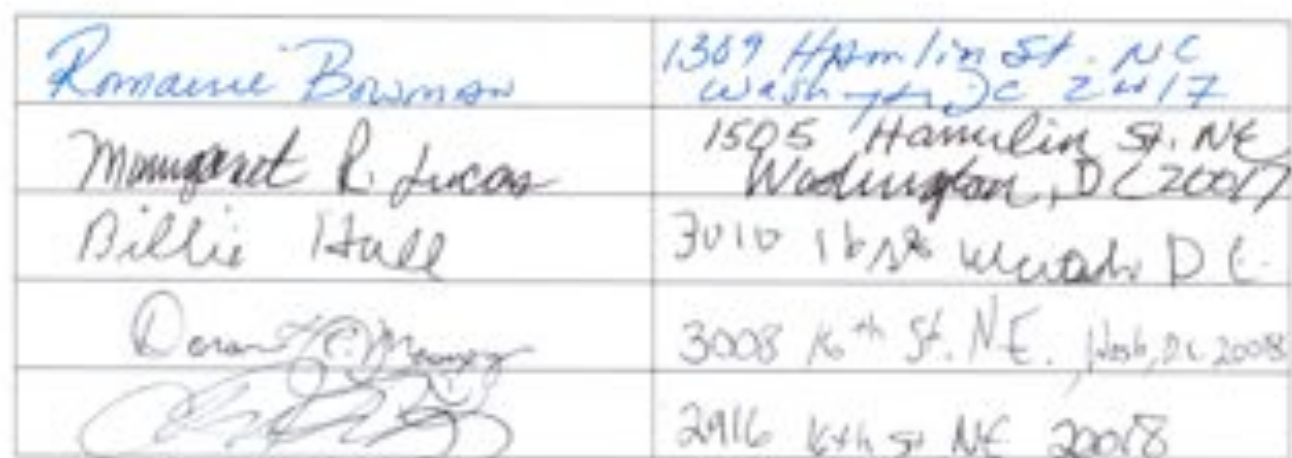 Romaine Bowman
1309 Hamlin St. NE
Washington DC 20017
Margaret R. Lucas
1505 Hamlin St. NE
Washington, DC 20017
Billie Hall
3010 16 D C
3008 16th St. N.E. Wash, DC 20018
2916 16th St NE 20018